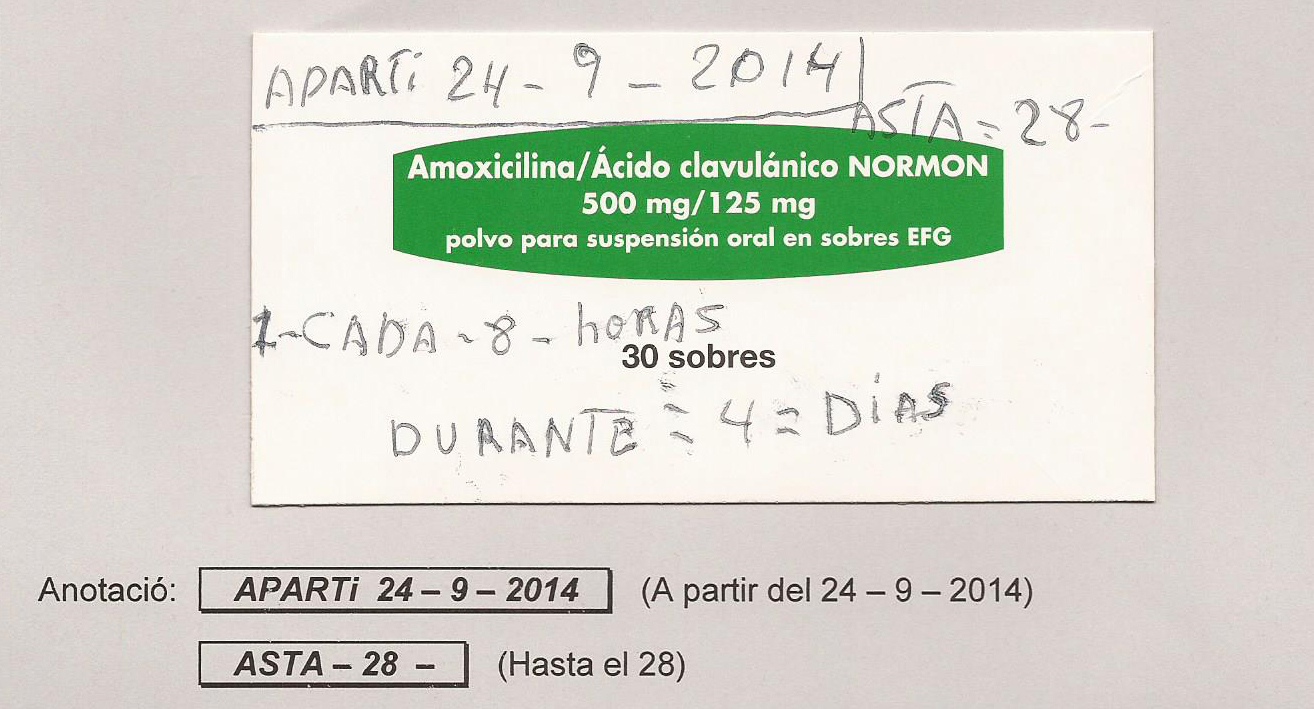 APARTi 24 - 9 - 2014
ASTA = 28-
Amoxicilina/Ácido clavulánico NORMON
500 mg/125 mg
polvo para suspensión oral en sobres EFG
1-CADA - 8 - hORAS
30 sobres
DURANTE = 4 = DíAS
Anotació: APARTi 24 – 9 – 2014 (A partir del 24 – 9 – 2014)
ASTA – 28 – (Hasta el 28)